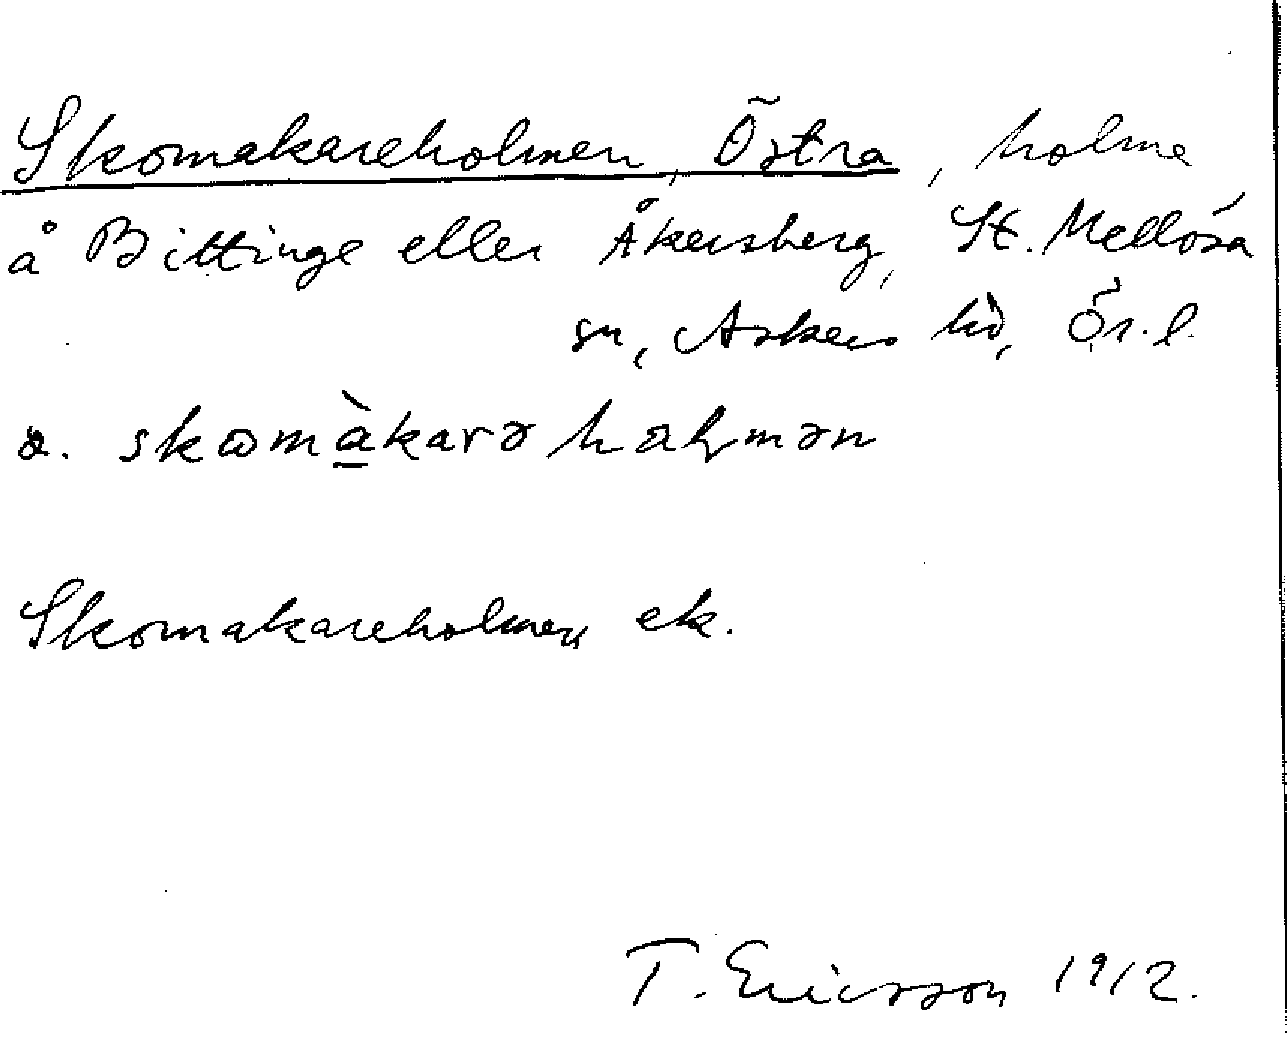 Skomakareholmen, Östra, holme
å Bittinge eller Åkersberg, St. Mellösa
sn, Askers hd, Ör. l.
a. skomàkarə halmən
Skomakareholmen ek.
T. Ericsson 1912.